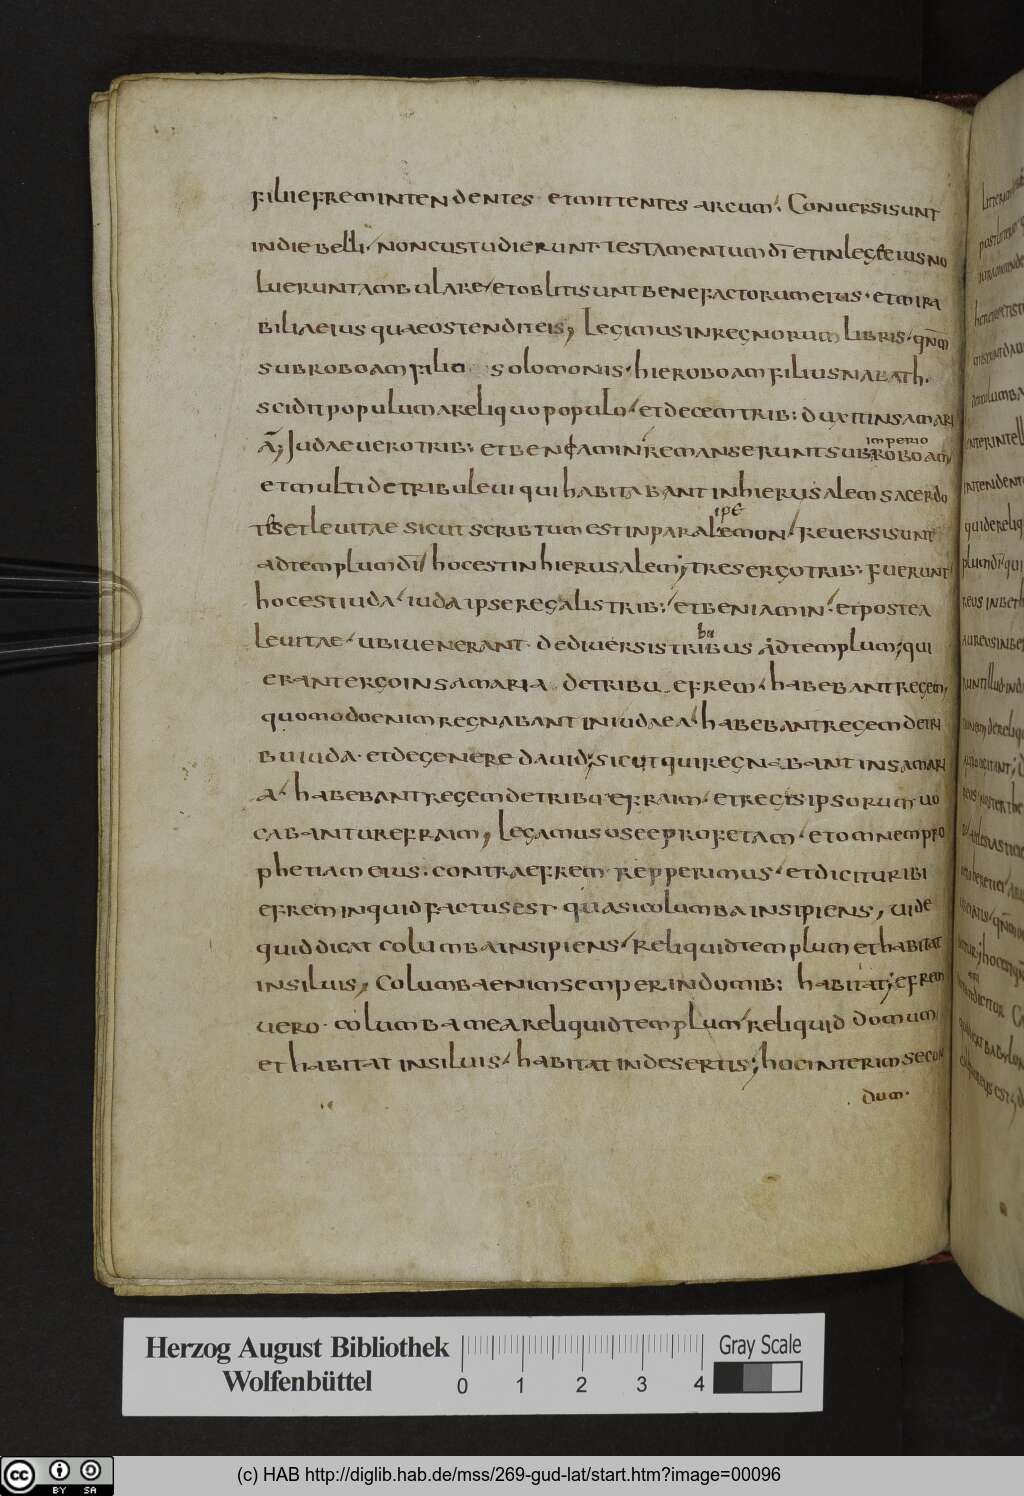 filii efrem intendentes et mittentes arcum. Conuersi sunt
in die belli. non custudierunt testamentum dī et in lege eius no
luerunt ambulare. et obliti sunt benefactorum eius. et mira
bilia eius quae ostendit eis; Legimus in regnorum libris. qnm
sub roboam filio solomonis. hieroboam filius nabath.
scidit populum a reliquo populo. et decem trib: duxit in samari
ā; Judae uero trib: et beniamin remanserunt sub imperio roboam
et multi de tribu leui qui habitabant in hierusalem sacerdo
tes et leuitae sicut scribtum est in paralipemenon. Reuersi sunt
ad templum dī. hoc est in hierusalem; tres ergo trib: fuerunt
hoc est iuda. iuda ipse regalis trib: et beniamin. et postea
leuitae. ubi uenerant de diuersis tribubus ad templum; qui
erant ergo in samaria de tribu efrem. habebant regem,
quomodo enim regnabant in iudaea. habebant regem de tri
bu iuda. et de genere dauid; sicut qui regnabant in samari
a. habebant regem de tribu efraim. et regis ipsorum uo
cabantur efraim; Legamus osee profetam. et omnem pro
phetiam eius. contra efrem repperimus. et dicitur ibi
efrem inquid factus est quasi columba insipiens, uide
quid dicat columba insipiens. Reliquid templum et habitat
in siluis; Columba enim semper in domib: habitat; efrem
uero columba mea reliquid templum. reliquid domum
et habitat in siluis. habitat in desertis; hoc interim secun
dum.
Herzog August Bibliothek
Wolfenbüttel
0 1 2 3 4
Gray Scale
cc BY SA
(c) HAB http://diglib.hab.de/mss/269-gud-lat/start.htm?image=00096